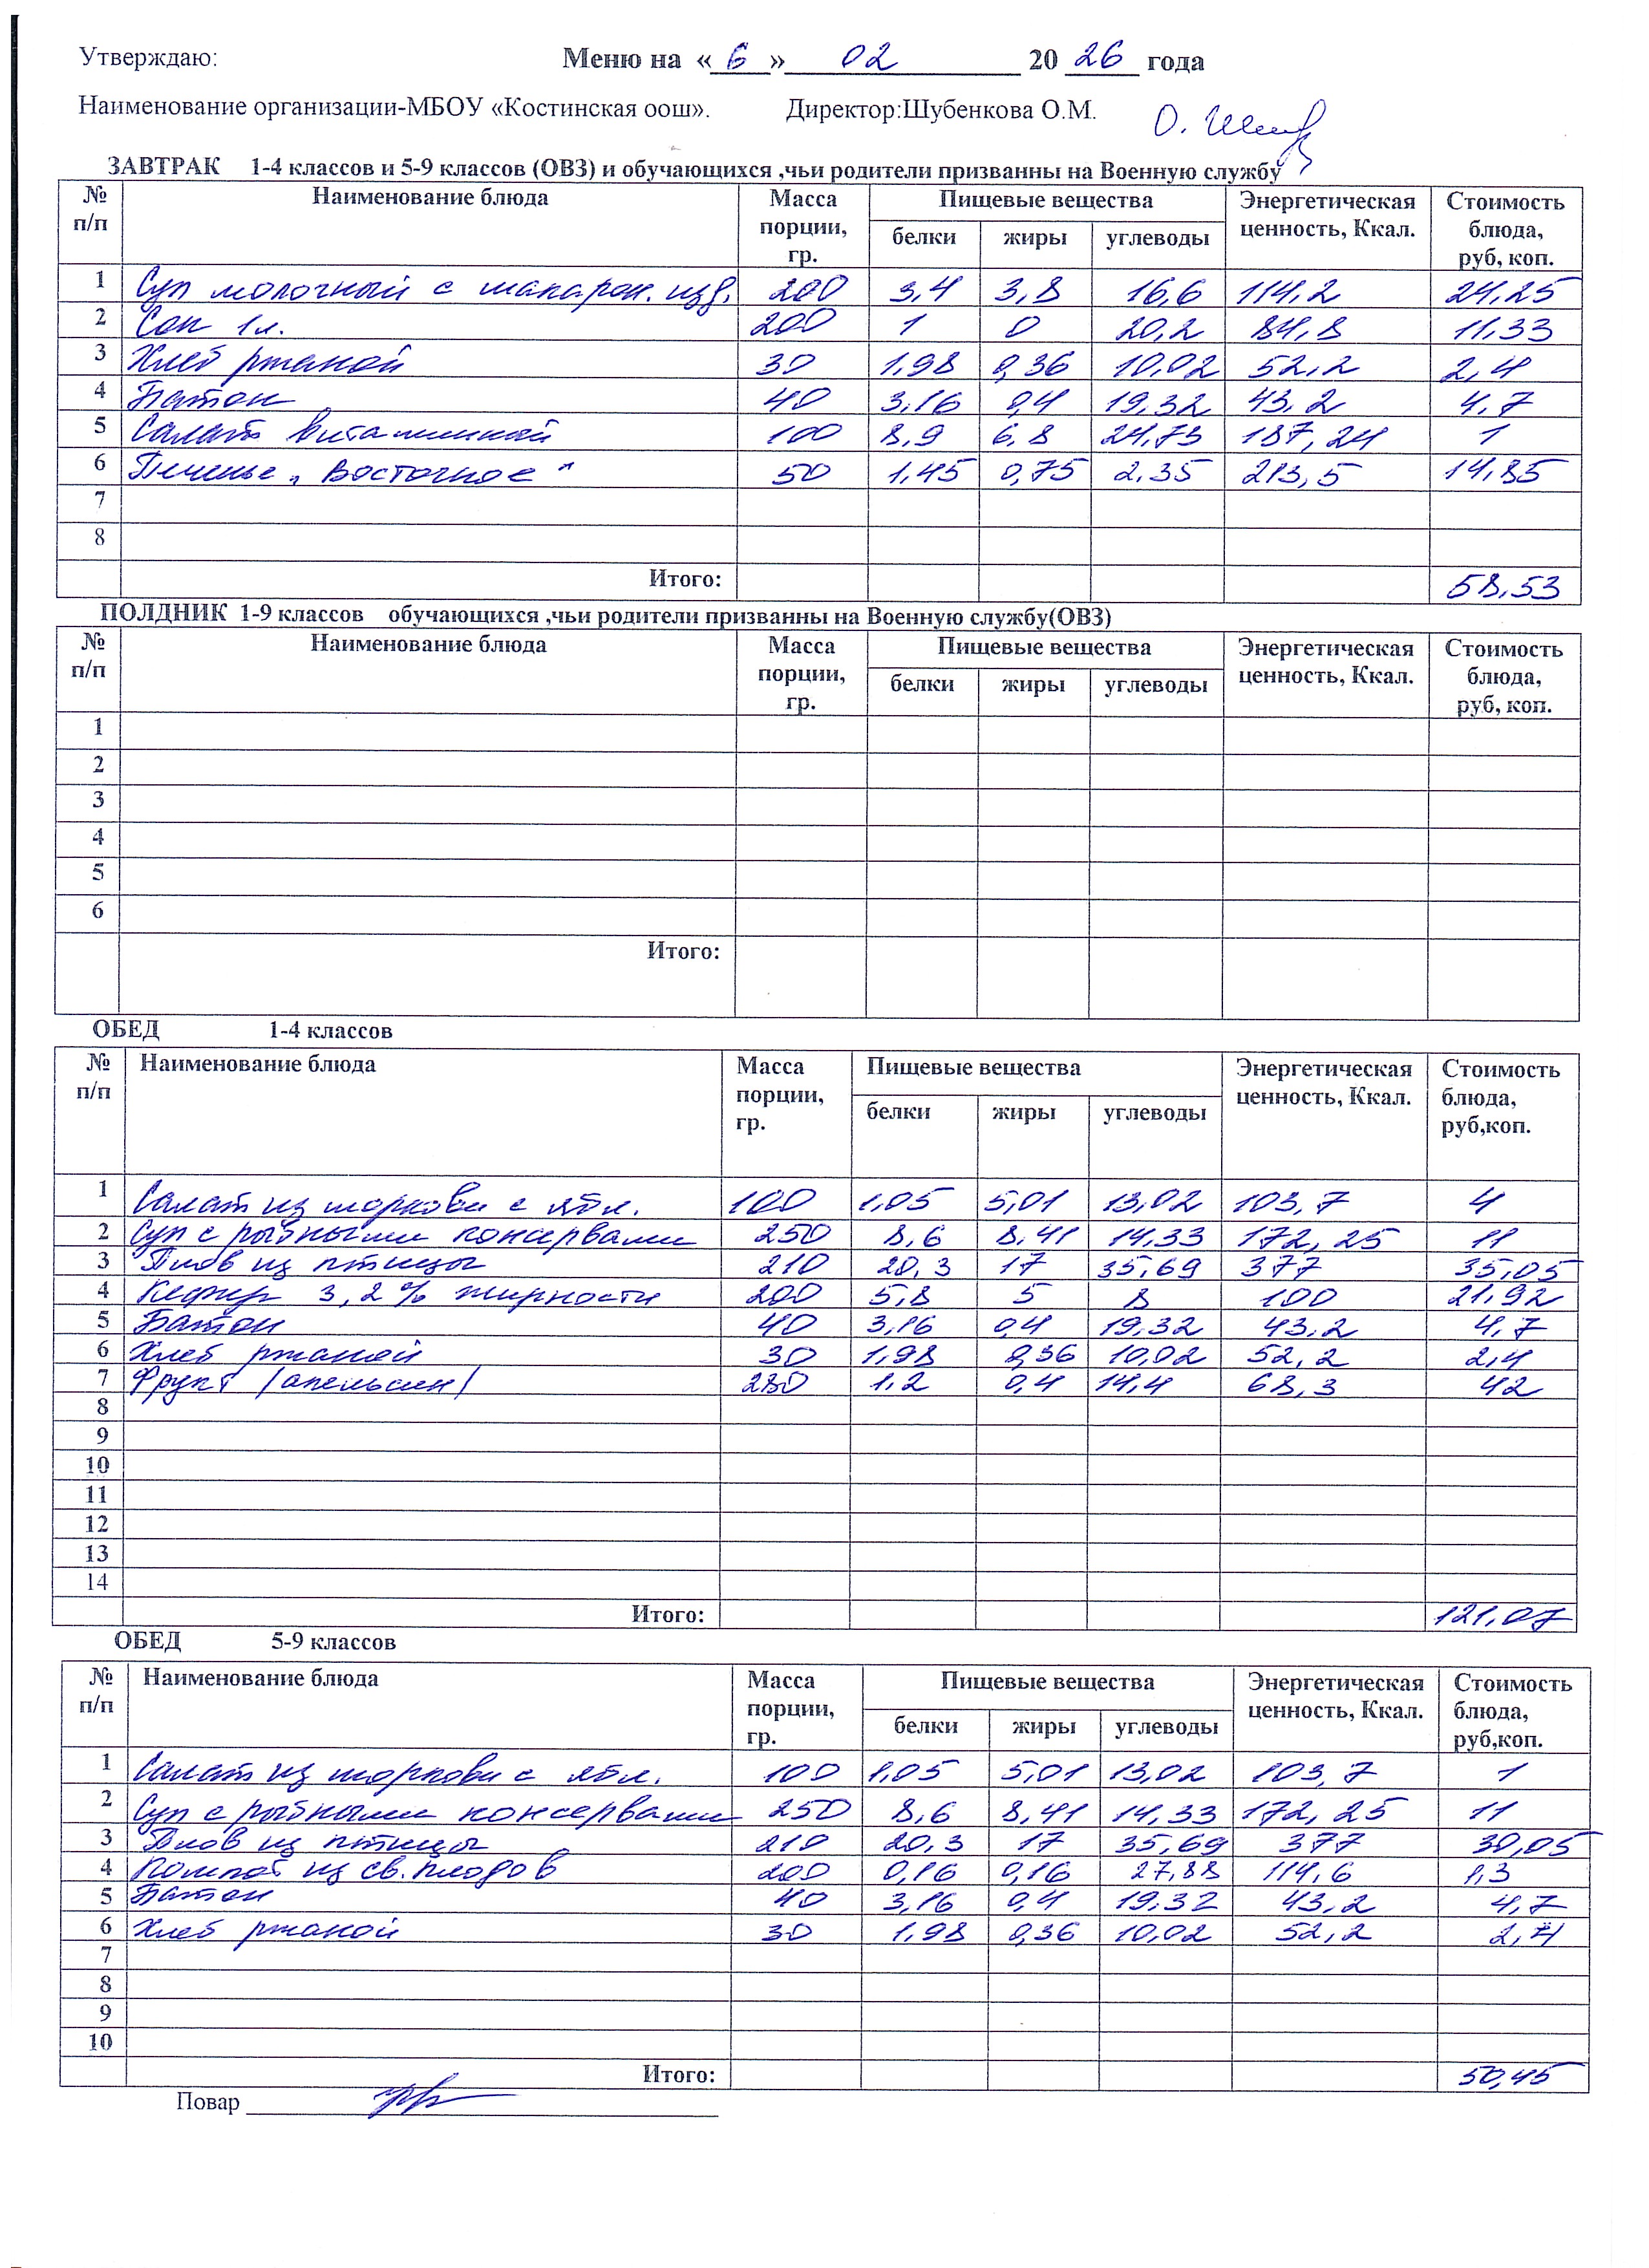 Утверждаю: Меню на «6» 02 2026 года
Наименование организации-МБОУ «Костинская оош». Директор:Шубенкова О.М.
ЗАВТРАК 1-4 классов и 5-9 классов (ОВЗ) и обучающихся ,чьи родители призванны на Военную службу
№ п/п Наименование блюда Масса порции, гр. Пищевые вещества Энергетическая ценность, Ккал. Стоимость блюда, руб, коп.
белки жиры углеводы
1 Суп молочный с макарон. изд. 200 3,4 3,8 16,6 114,2 24,25
2 Сок 1л. 200 1 0 20,2 84,8 11,33
3 Хлеб ржаной 30 1,98 0,36 10,02 52,2 2,4
4 Батон 40 3,16 0,4 19,32 43,2 4,7
5 Салат витаминный 100 8,9 6,8 24,73 187,24 1
6 Печенье „Восточное" 50 1,45 0,75 2,35 213,5 14,85
7
8
Итого: 58,53
ПОЛДНИК 1-9 классов обучающихся ,чьи родители призванны на Военную службу(ОВЗ)
№ п/п Наименование блюда Масса порции, гр. Пищевые вещества Энергетическая ценность, Ккал. Стоимость блюда, руб, коп.
белки жиры углеводы
1
2
3
4
5
6
Итого:
ОБЕД 1-4 классов
№ п/п Наименование блюда Масса порции, гр. Пищевые вещества Энергетическая ценность, Ккал. Стоимость блюда, руб,коп.
белки жиры углеводы
1 Салат из моркови с ябл. 100 1,05 5,01 13,02 103,7 4
2 Суп с рыбными консервами 250 8,6 8,41 14,33 172,25 11
3 Плов из птицы 210 20,3 17 35,69 377 35,05
4 Кефир 3,2% жирности 200 5,8 5 8 100 21,92
5 Батон 40 3,16 0,4 19,32 43,2 4,7
6 Хлеб ржаной 30 1,98 0,36 10,02 52,2 2,4
7 Фрукт /апельсин/ 280 1,2 0,4 14,4 68,3 42
8
9
10
11
12
13
14
Итого: 121,07
ОБЕД 5-9 классов
№ п/п Наименование блюда Масса порции, гр. Пищевые вещества Энергетическая ценность, Ккал. Стоимость блюда, руб,коп.
белки жиры углеводы
1 Салат из моркови с ябл. 100 1,05 5,01 13,02 103,7 1
2 Суп с рыбными консервами 250 8,6 8,41 14,33 172,25 11
3 Плов из птицы 210 20,3 17 35,69 377 30,05
4 Компот из св. плодов 200 0,16 0,16 27,88 114,6 1,3
5 Батон 40 3,16 0,4 19,32 43,2 4,7
6 Хлеб ржаной 30 1,98 0,36 10,02 52,2 2,4
7
8
9
10
Итого: 50,45
Повар